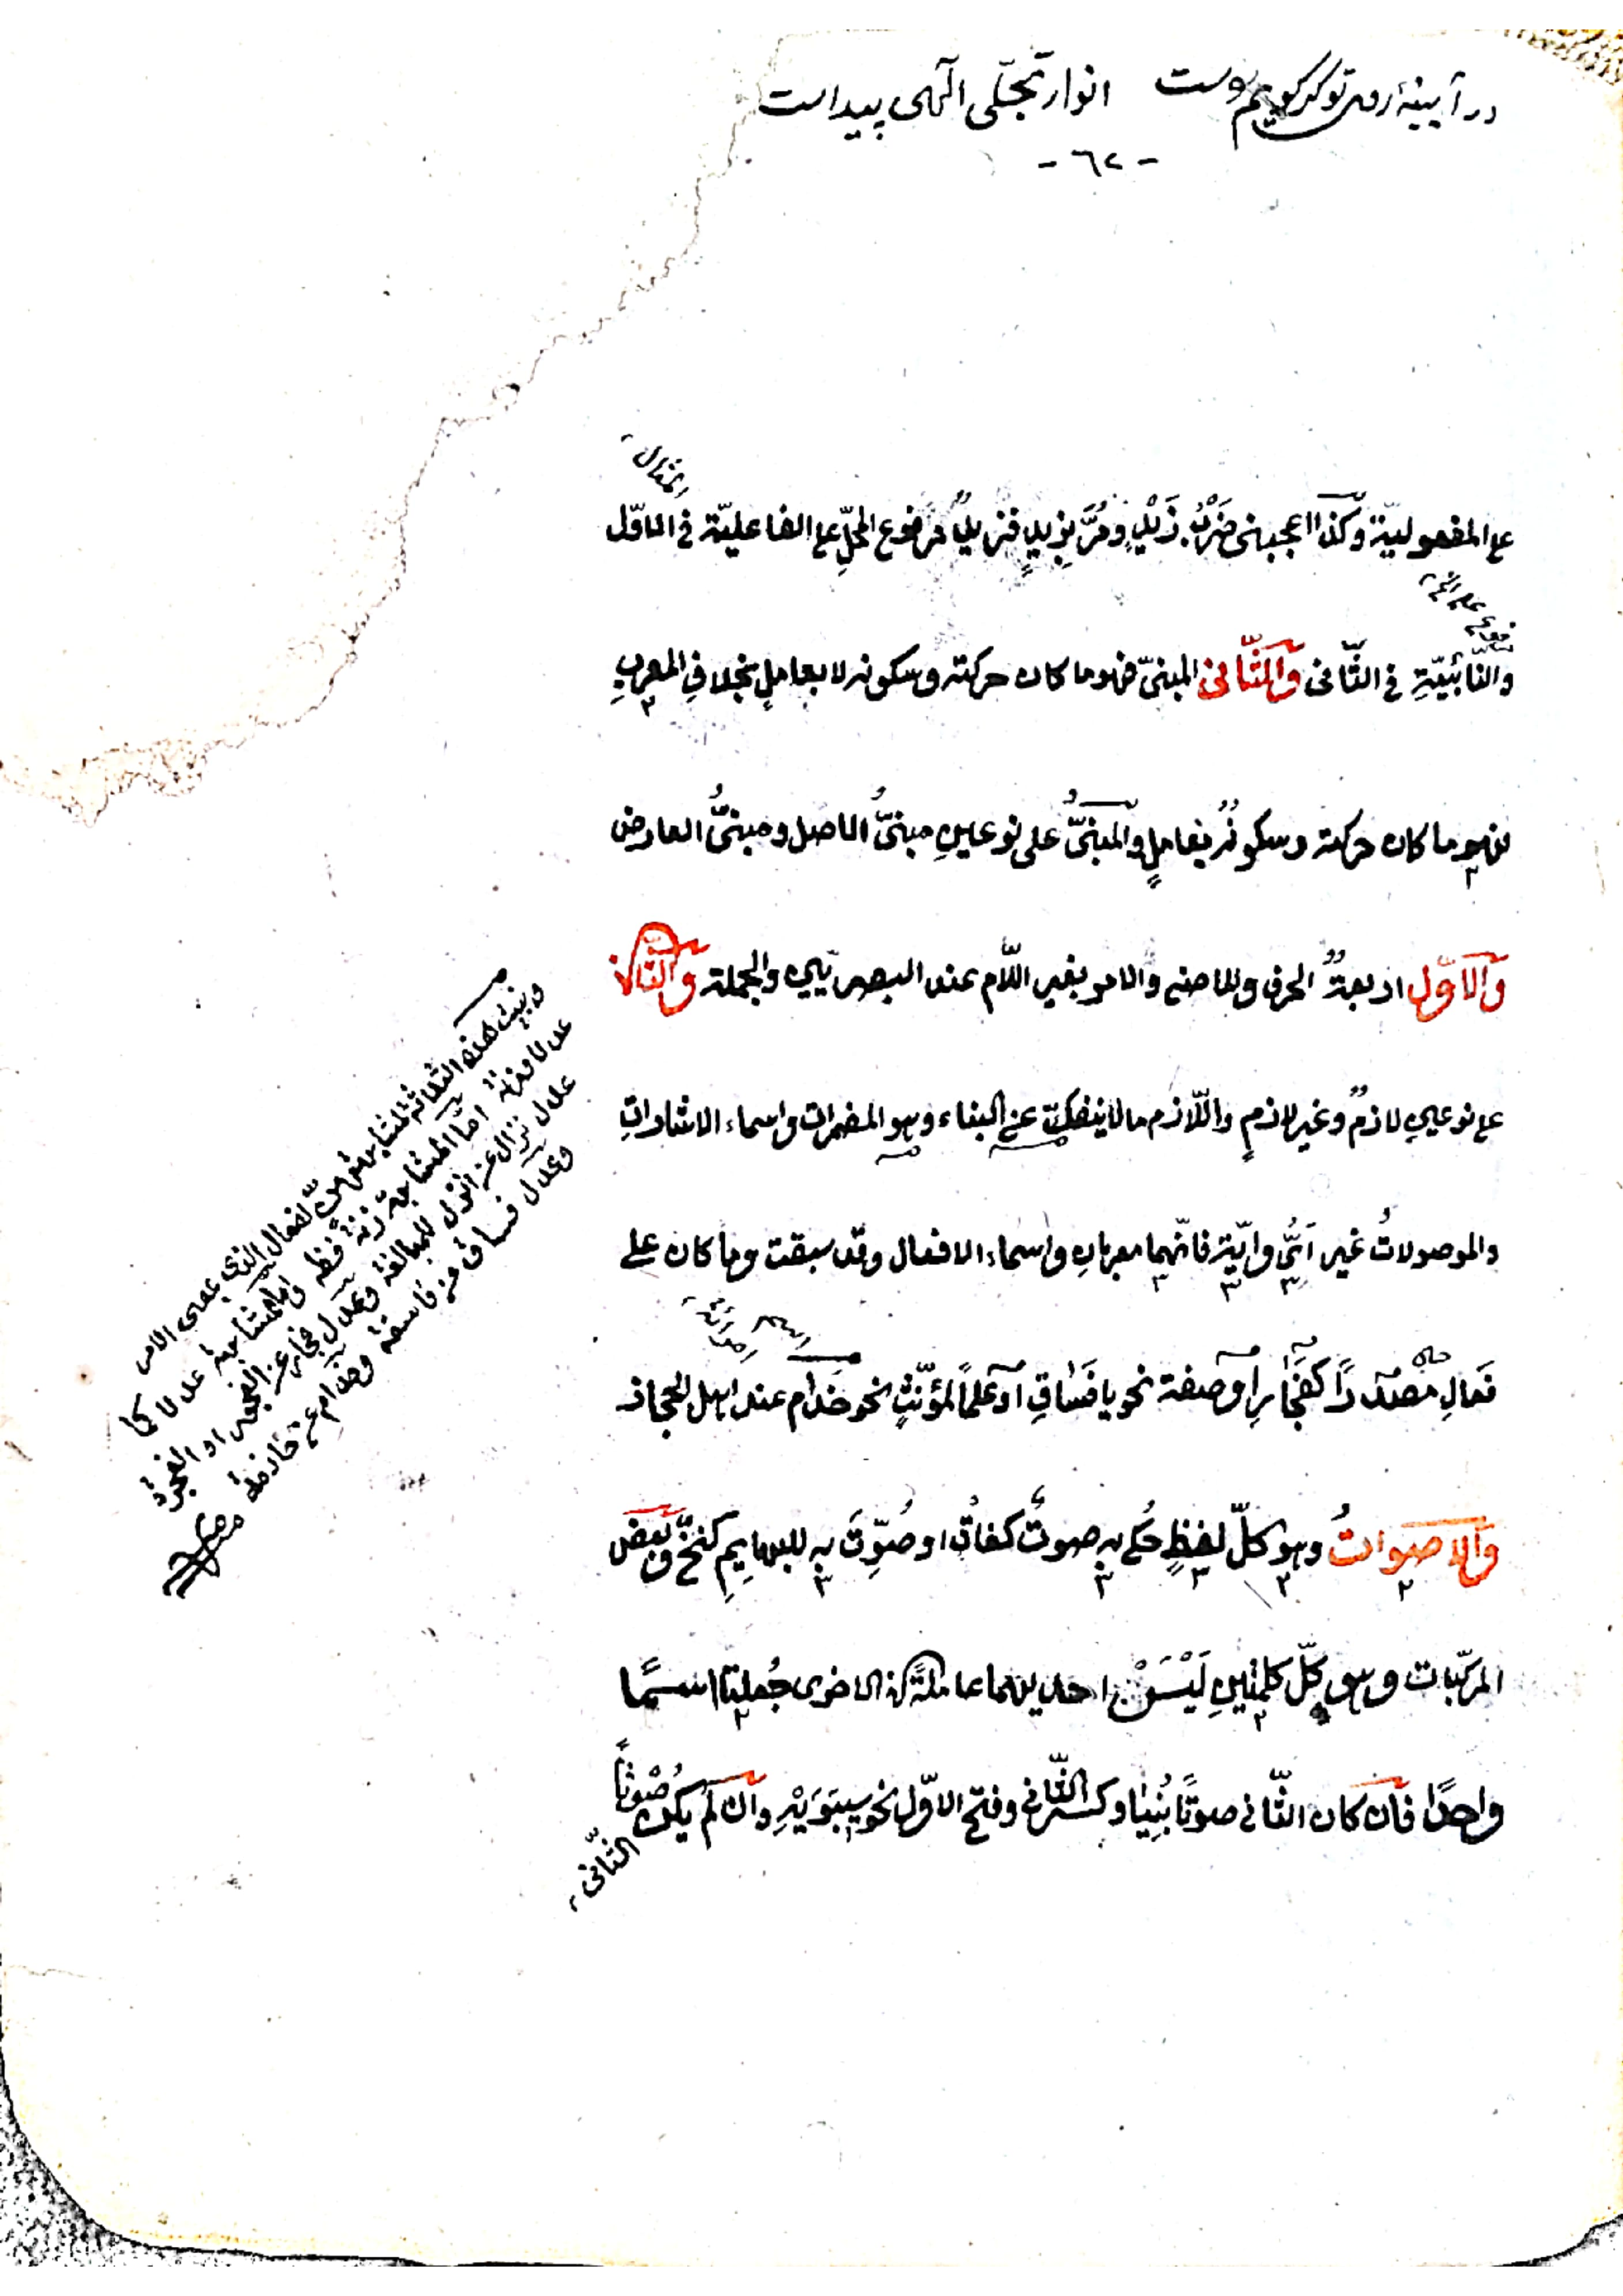 در آیینهٔ روی تو کر کویم وست انوار تجلّی آلهی پیداست
- ٦٢ -
المثال
علی المفعولیّة وکذا اعجبنی ضَرْبُ زَیْدٍ ومُرَّ بِزیدٍ فزیدٌ مرفوع المحلِّ علی الفاعلیّة فی الاوّل
والنّائبیّةِ فی الثّانی والثّانی المبنیّ فهو ما کان حرکته وسکونه لا بعاملٍ بخلافِ المعربِ
فهو ما کان حرکته وسکونُه بعاملٍ والمبنیُّ علی نوعینِ مبنیُّ الاصل ومبنیُّ العارض
والاوّل اربعةٌ الحرف والماضی والامر بغیر اللّام عند البصریّین والجملة والثّانی
علی نوعینِ لازمٌ وغیر لازمٍ واللّازم ما لا ینفکّ عن البناء وهو المضمرات واسماء الاشاراتِ
والموصولاتُ غیر اَیٍّ وایّة فانّهما معربان واسماء الافعال وقد سبقت وما کان علی
فَعالِ مصدرًا کفَجَارِ او صفة نحو یا فَسَاقِ او علمًا لمؤنّثٍ نحو حَذام عند اهل الحجاز
والاصواتُ وهو کلّ لفظٍ حُکی به صوتٌ کغاق او صُوِّتَ به للبهایِمِ کنخّ وبعض
المرکّبات وهی کلّ کلمتینِ لَیْسَتْ احدیهما عاملةً فی الاخری جُعلتا اسمًا
واحدًا فان کان الثّانی صوتًا بُنِیَا وکسر الثّانی وفتح الاوّل نحو سیبَوَیْهِ وان لم یکن صَوْتًا
الثّانی
وبنیت هذه الثلاثة لمشابهتهنّ لفعال الذی بمعنی الامر
عدلا وزنة امّا المشابهة زنة فظ وامّا المشابهة عدلا کما
عدل نزال عن انزل للمبالغة وعدل فجار عن الفجور او الفجرة
وعدل فساق من فاسقة وحذام عن حاذمة